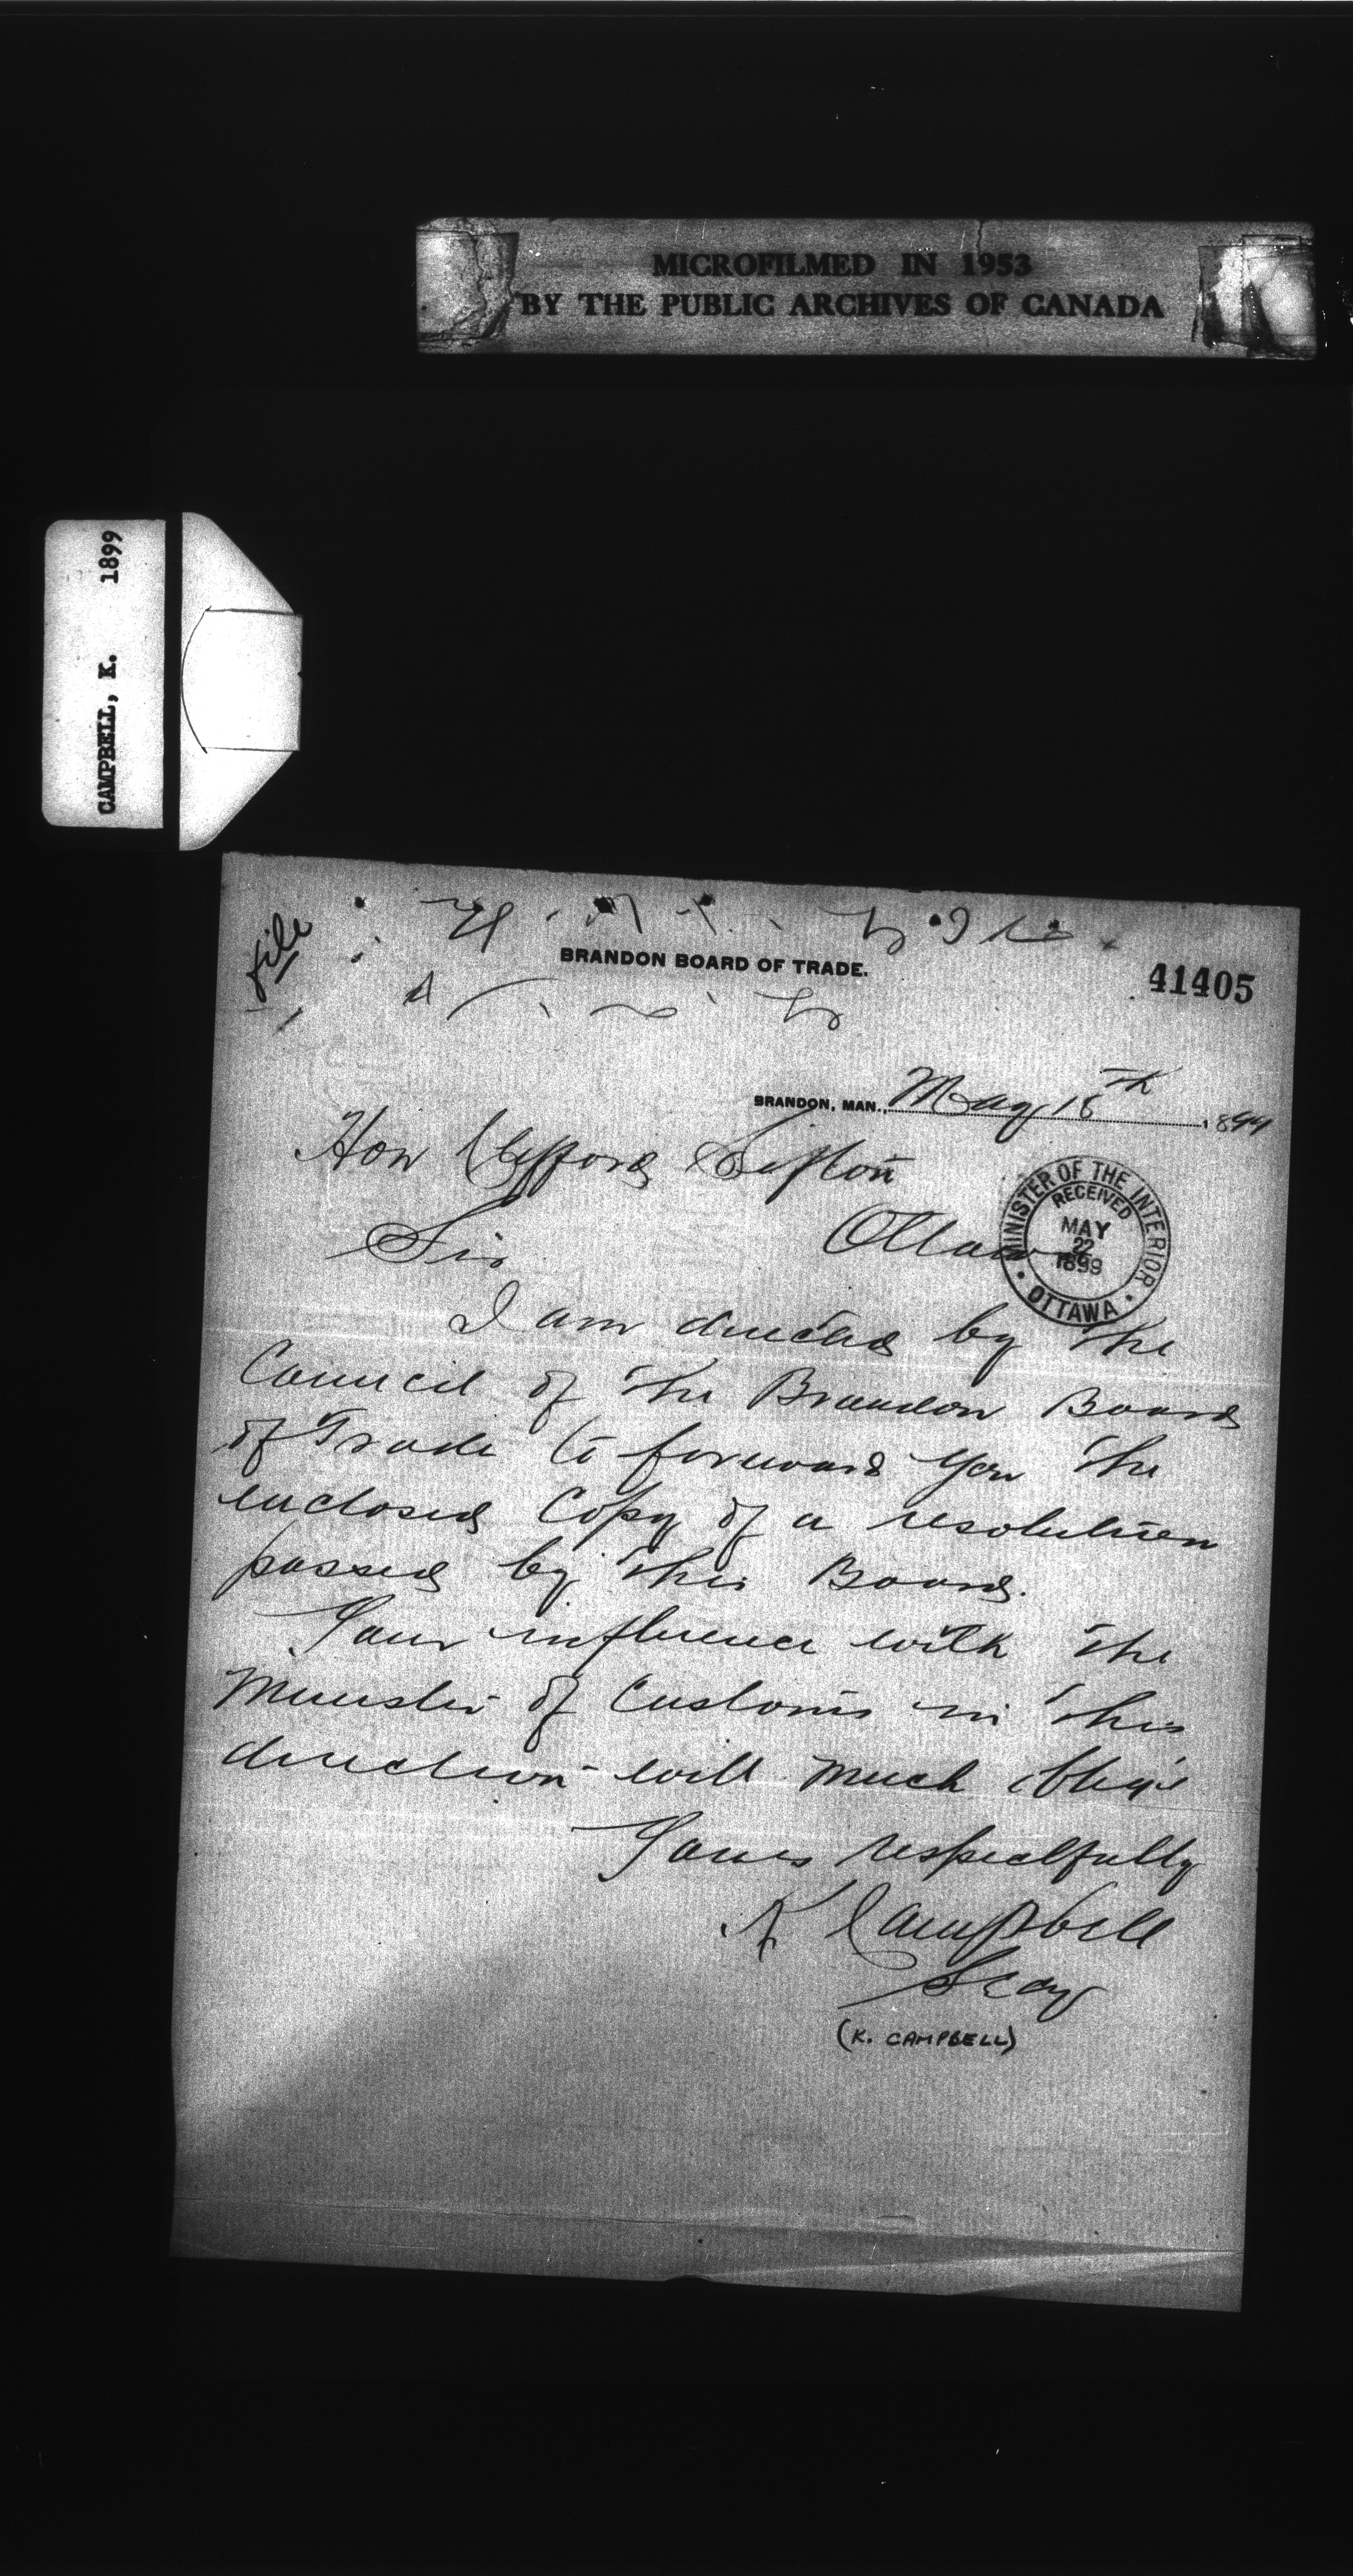 MICROFILMED IN 1953
BY THE PUBLIC ARCHIVES OF CANADA
CAMPBELL, K. 1899
file
BRANDON BOARD OF TRADE.
41405
BRANDON, MAN., May 18th 1899
Hon Clifford Sifton
Ottawa
MINISTER OF THE INTERIOR
RECEIVED
MAY
22
1899
OTTAWA
Sir
I am directed by the
Council of the Brandon Board
of Trade to forward you the
enclosed Copy of a resolution
passed by this Board.
Your influence with the
Minister of Customs in this
direction will much oblige
Yours respectfully
K Campbell
Secy
(K. CAMPBELL)